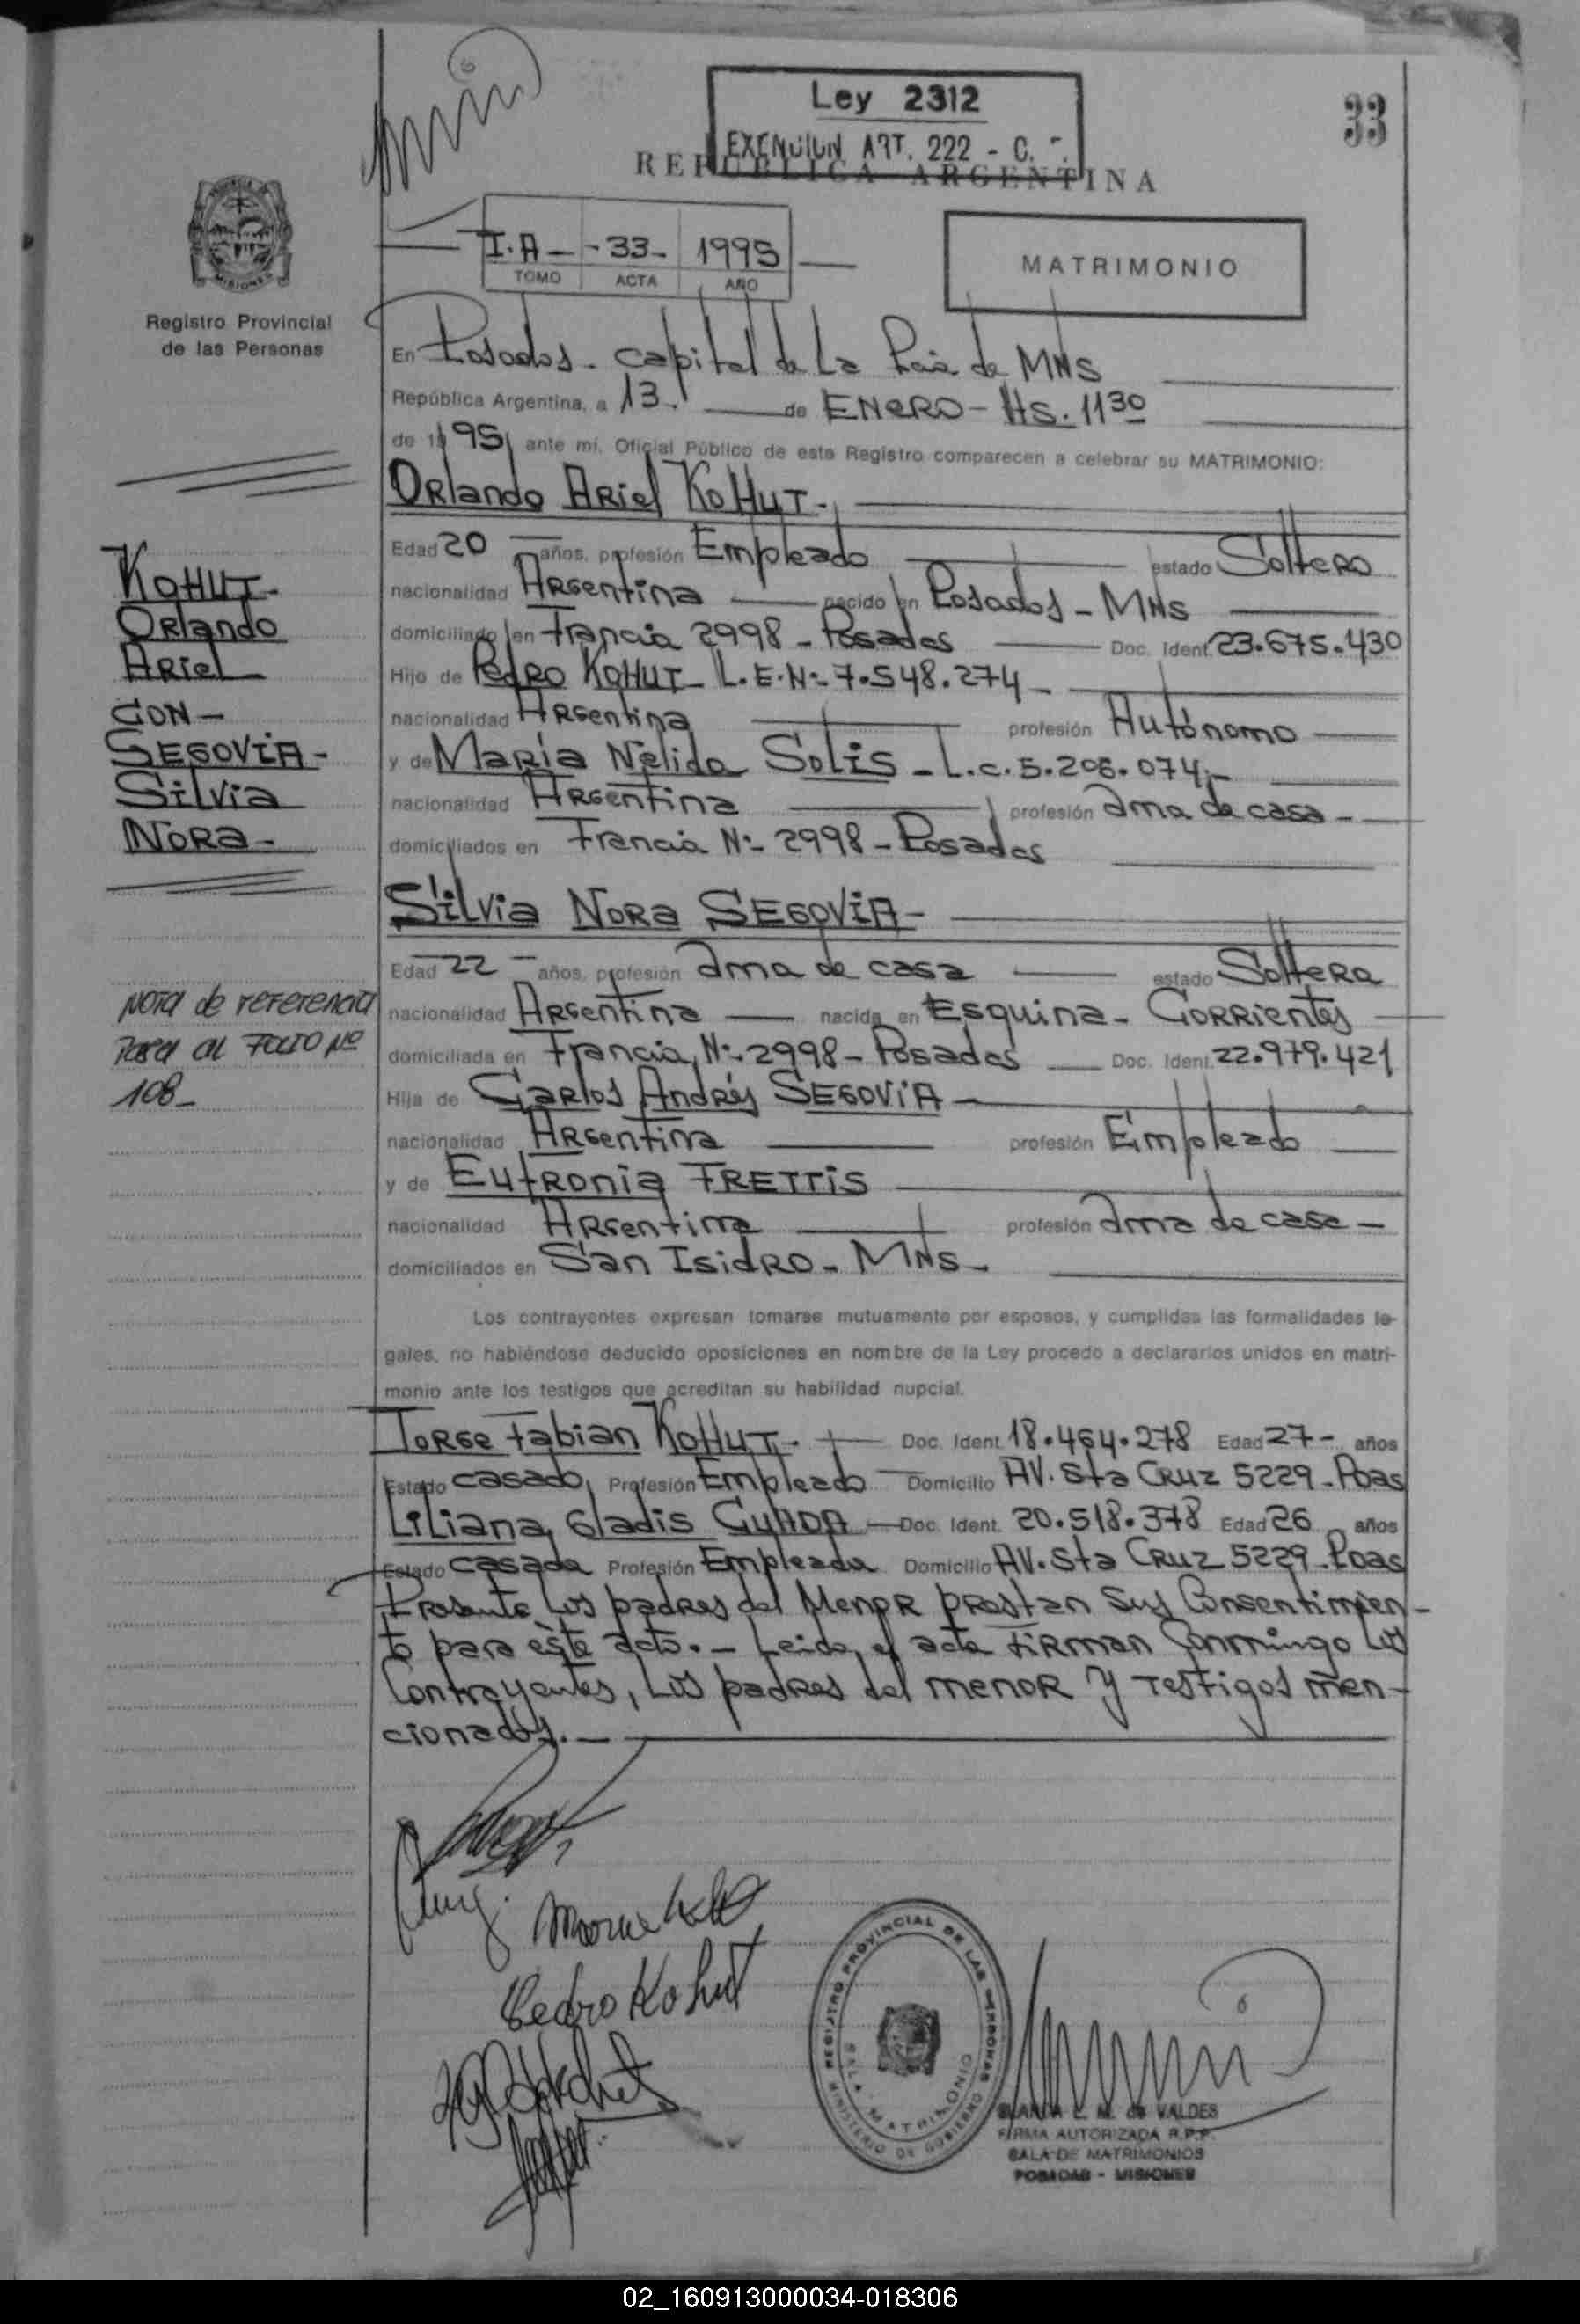 Ley 2312
EXENCIUN ART. 222 - C.
33
REPUBLICA ARGENTINA
I.A - - 33 - 1995
TOMO ACTA AÑO
MATRIMONIO
MISIONES
Registro Provincial
de las Personas
En Posadas - capital de La Pcia de MNS
República Argentina, a 13. de ENERO - Hs. 11 30
de 1995 ante mí, Oficial Público de este Registro comparecen a celebrar su MATRIMONIO:
Orlando Ariel KOHUT -
Edad 20 años, profesión Empleado estado Soltero
nacionalidad Argentina nacido en Posadas - MNS
domiciliado en Francia 2998 - Posadas Doc. Ident. 23.675.430
Hijo de Pedro KOHUT - L.E.Nº 7.548.274 -
nacionalidad Argentina profesión Autónomo
y de María Nelida SOLIS - L.C. 5.206.074 -
nacionalidad Argentina profesión ama de casa -
domiciliados en Francia Nº 2998 - Posadas
KOHUT -
Orlando
Ariel
CON -
SEGOVIA -
Silvia
NORA -
Silvia NORA SEGOVIA -
Edad 22 años, profesión ama de casa estado Soltera
nacionalidad Argentina nacida en Esquina - Corrientes
domiciliada en Francia Nº 2998 - Posadas Doc. Ident. 22.979.421
Hija de Carlos Andrés SEGOVIA -
nacionalidad Argentina profesión Empleado
y de Eufronia FRETTIS
nacionalidad Argentina profesión ama de casa -
domiciliados en San Isidro - MNS -
NOTA de referencia
Pasa al FOLIO Nº
108 -
Los contrayentes expresan tomarse mutuamente por esposos, y cumplidas las formalidades le-
gales, no habiéndose deducido oposiciones en nombre de la Ley procedo a declararlos unidos en matri-
monio ante los testigos que acreditan su habilidad nupcial.
Jorge Fabian KOHUT - Doc. Ident. 18.464.278 Edad 27 - años
Estado casado Profesión Empleado Domicilio AV. Sta Cruz 5229 - Pdas
Liliana Gladis Doc. Ident. 20.518.378 Edad 26 años
Estado casada Profesión Empleada Domicilio AV. Sta Cruz 5229 - Pdas
Presente Los padres del Menor prestan sus Consentimien-
to para este acto. - Leida el acta firman Conmingo Los
Contrayentes, Los padres del menor y Testigos men-
cionados. -
Pedro Kohut
REGISTRO PROVINCIAL DE LAS PERSONAS
SALA MATRIMONIO
MINISTERIO DE GOBIERNO
BLANCA E. M. de VALDES
FIRMA AUTORIZADA R.P.P.
SALA DE MATRIMONIOS
POSADAS - MISIONES
02_160913000034-018306